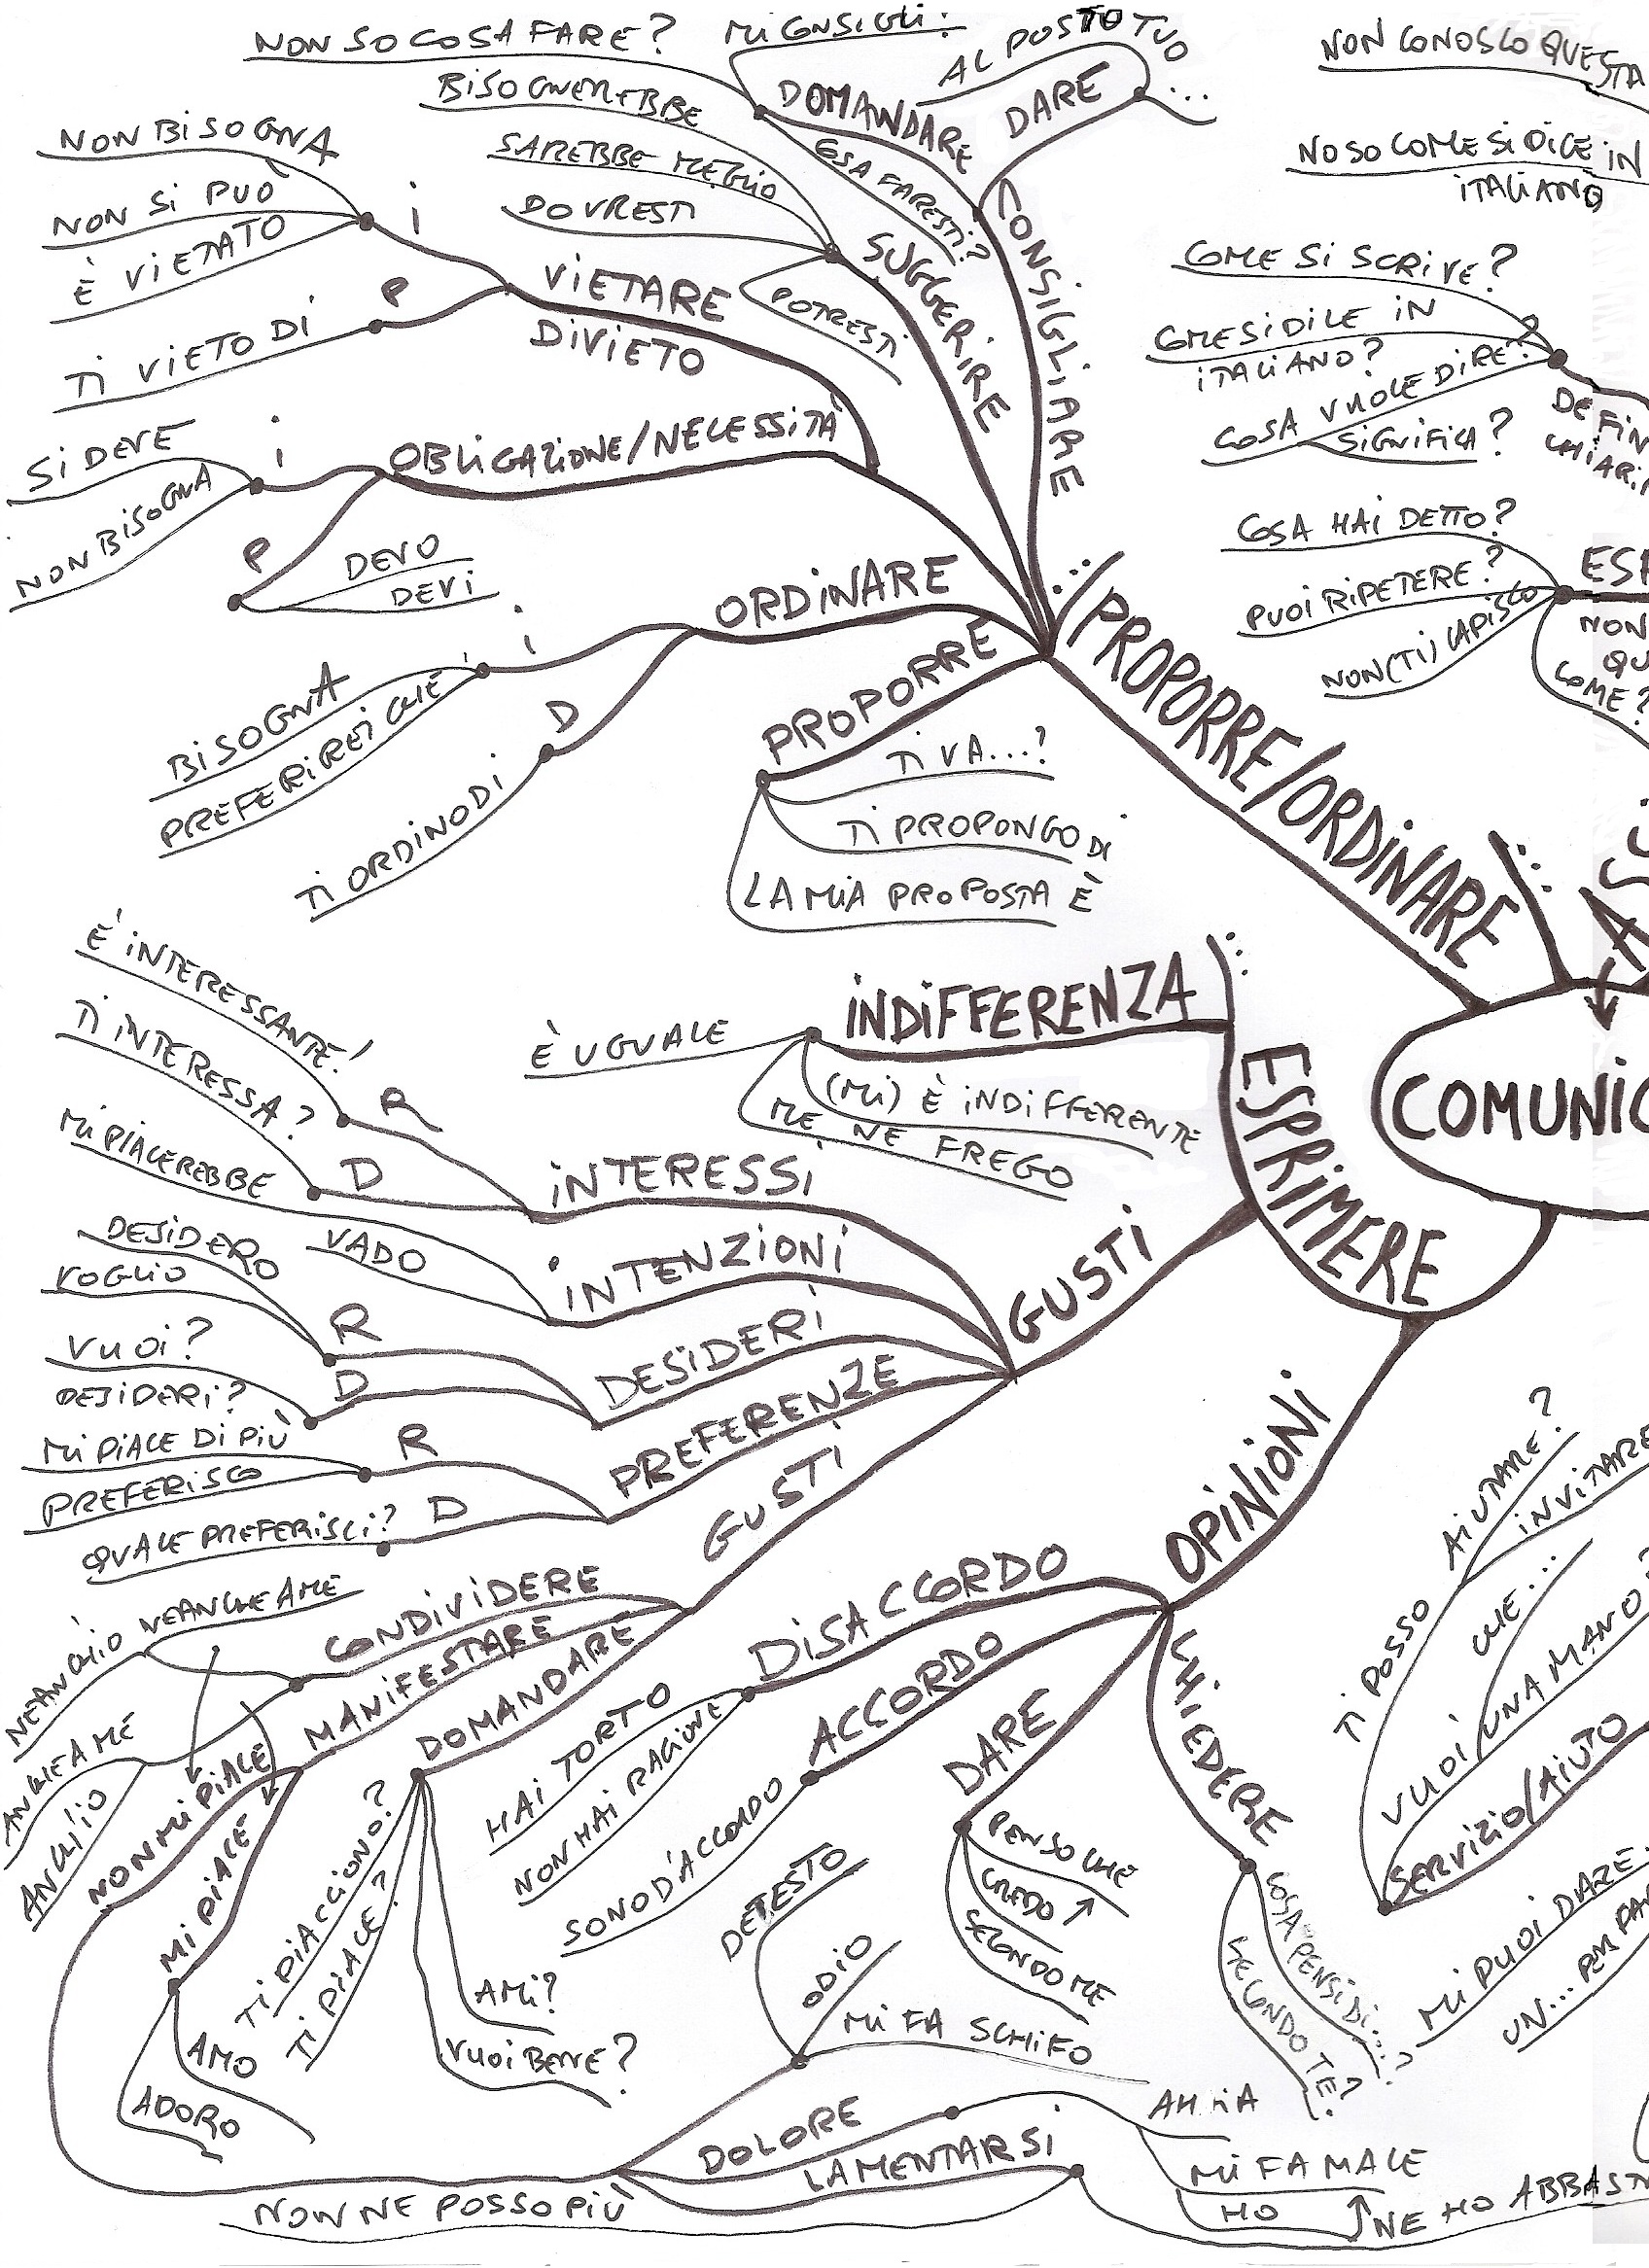 NON SO COSA FARE?
MI CONSIGLI:
AL POSTO TUO
...
DOMANDARE
DARE
COSA FARESTI?
CONSIGLIARE
BISOGNEREBBE
SAREBBE MEGLIO
DOVRESTI
POTRESTI
SUGGERIRE
NON BISOGNA
NON SI PUÒ
È VIETATO
i
TI VIETO DI
P
VIETARE
DIVIETO
SI DEVE
NON BISOGNA
i
P
DEVO
DEVI
OBLIGAZIONE/NECESSITÀ
ORDINARE
i
BISOGNA
PREFERIREI CHE
D
TI ORDINO DI
PROPORRE
TI VA...?
TI PROPONGO DI
LA MIA PROPOSTA È
...
PROPORRE/ORDINARE
...
NON CONOSCO QUESTA
NO SO COME SI DICE IN
ITALIANO
COME SI SCRIVE?
COME SI DICE IN
ITALIANO?
COSA VUOLE DIRE?
SIGNIFICA?
DEFIN
CHIARI
COSA HAI DETTO?
PUOI RIPETERE?
NON (TI) CAPISCO
ES
NON
QU
COME?
COMUNIC
ESPRIMERE
...
INDIFFERENZA
È UGUALE
(MI) È INDIFFERENTE
ME NE FREGO
GUSTI
È INTERESSANTE!
R
TI INTERESSA?
D
INTERESSI
MI PIACEREBBE
VADO
INTENZIONI
DESIDERO
VOGLIO
R
VUOI?
DESIDERI?
D
DESIDERI
MI PIACE DI PIÙ
PREFERISCO
R
QUALE PREFERISCI?
D
PREFERENZE
GUSTI
CONDIVIDERE
NEANCHE A ME
NEANCH'IO
ANCHE A ME
ANCH'IO
MANIFESTARE
NON MI PIACE
MI PIACE
AMO
ADORO
DOMANDARE
TI PIACCIONO?
TI PIACE?
AMI?
VUOI BENE?
OPINIONI
DISACCORDO
HAI TORTO
NON HAI RAGIONE
ACCORDO
SONO D'ACCORDO
DARE
PENSO CHE
CREDO ↑
SECONDO ME
CHIEDERE
COSA PENSI DI...?
SECONDO TE?
DETESTO
ODIO
MI FA SCHIFO
DOLORE
AHIA
MI FA MALE
HO ↑
LAMENTARSI
NON NE POSSO PIÙ
NE HO ABBAST
TI POSSO AIUTARE?
INVITARE
CHE...
VUOI UNA MANO?
SERVIZIO/AIUTO
MI PUOI DARE
UN...